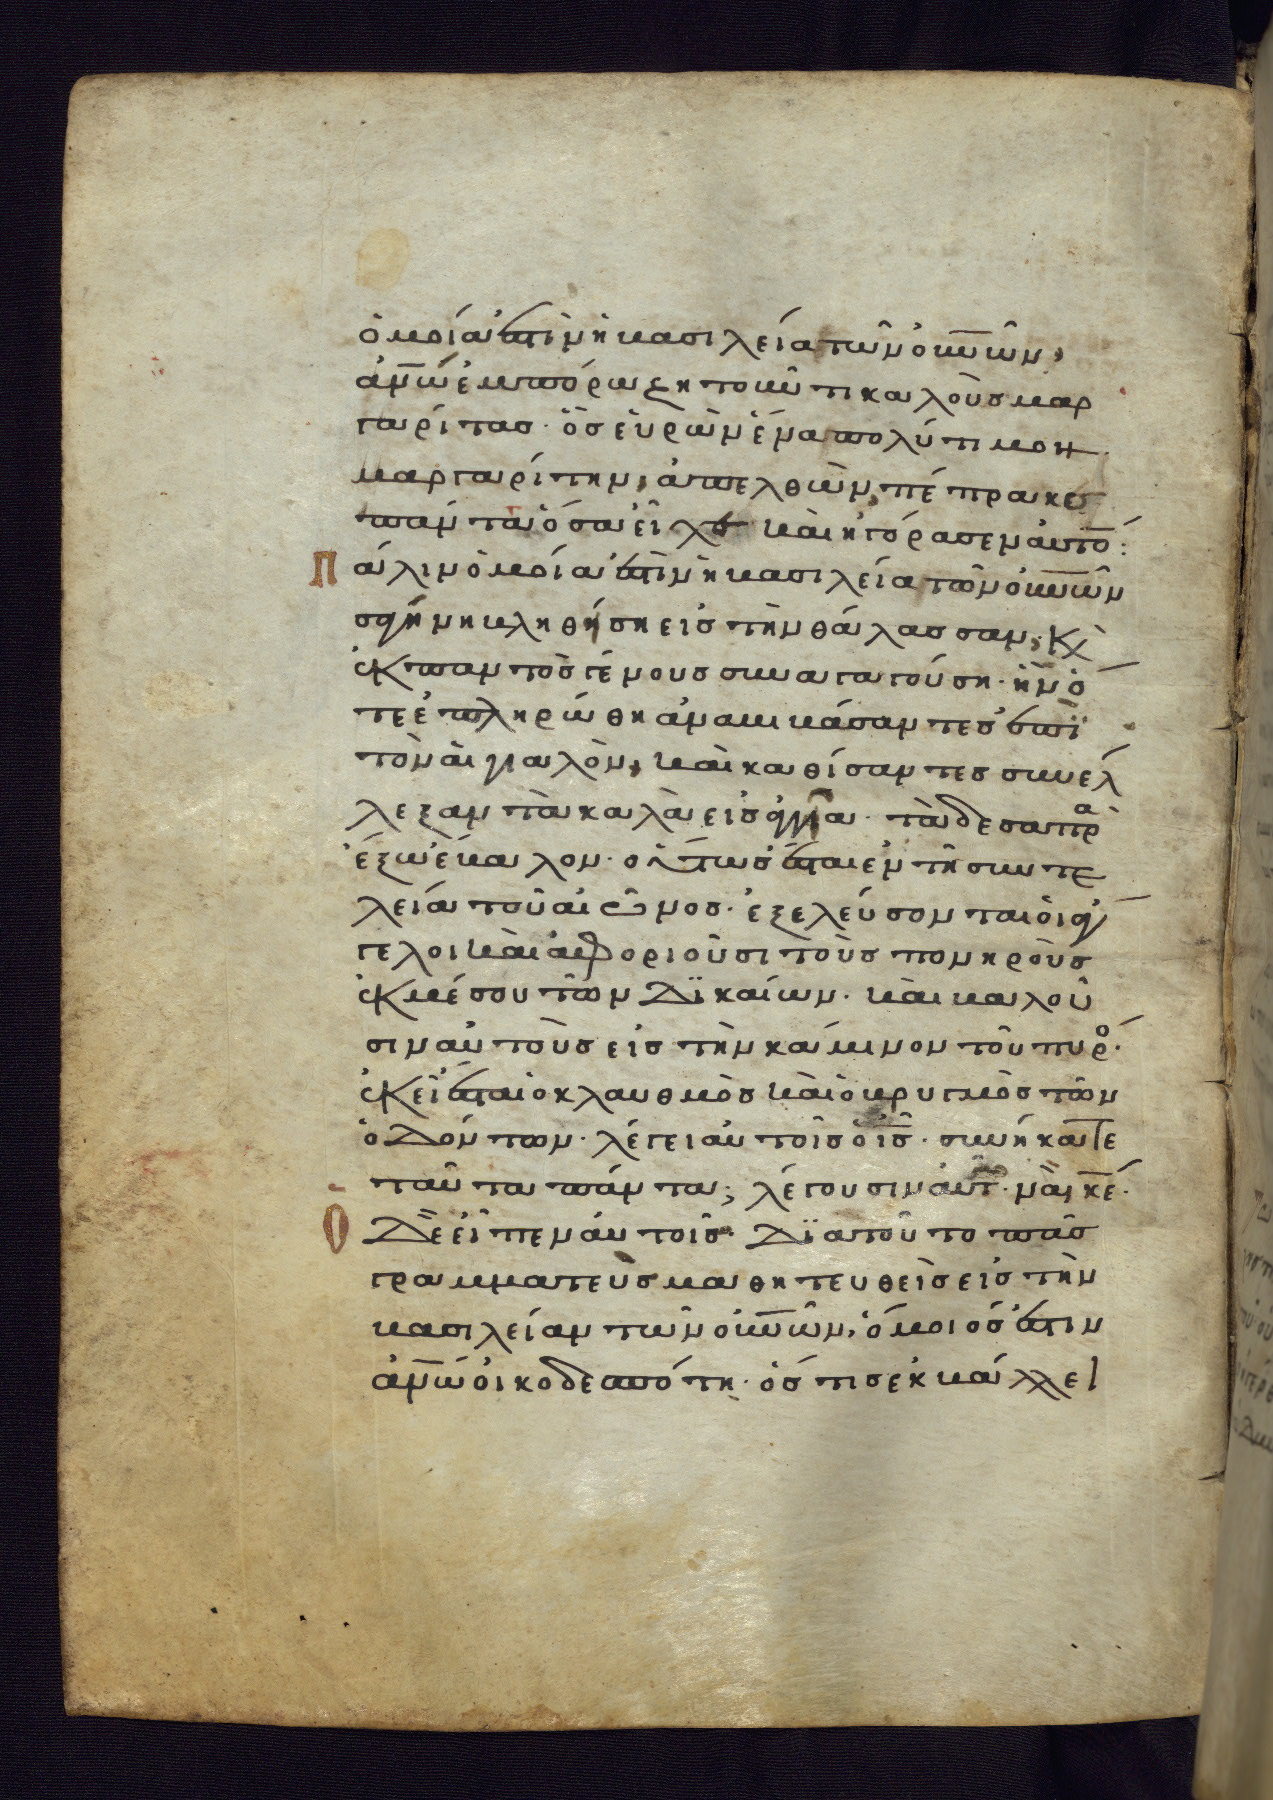 ὁμοία ἐστὶν ἡ βασιλεία τῶν ο̅υ̅ν̅ῶν,
ἀν̅ω̅ ἐμπόρω ζητοῦντι καλοὺσ μαρ
γαρίτασ · ὃσ εὑρὼν ἕνα πολύτιμον
μαργαρίτην, ἀπελθὼν, πέπρακε
πάντα ὅσα εἶχε καὶ ἠγόρασεν αὐτό:
Πάλιν ὁμοία ἐστὶν ἡ βασιλεία τῶν ο̅υ̅ν̅ῶν
σαγήνη βληθήση εἰσ τὴν θάλασσαν, κ̀
ἐκ παντὸσ γένουσ συναγαγούση · ἣν ὅ
τε ἐπληρώθη ἀναβιβάσαντεσ ἐπὶ
τὸν αἰγιαλὸν, καὶ καθίσαντεσ συνέλ
λεξαν τὰ καλὰ εἰσ ἀγγεῖα · τὰ δε σαπρὰ
ἔξω ἔβαλον · οὕτωσ ἔσται ἐν τῆ συντε
λεία τοῦ αἰῶνοσ · ἐξελεύσονται οἱ ἄγ
γελοι καὶ ἀφοριοῦσι τοὺσ πονηροὺσ
ἐκ μέσου τῶν δϊκαίων · καὶ βαλοῦ
σιν αὐτοὺσ εἰσ τὴν κάμινον τοῦ πυρό·
ἐκεῖ ἔσται ὁ κλαυθμὸσ καὶ ὁ βρυγμὸσ τῶν
ὀδόντων · λέγει αὐτοῖσ ὁ ι̅σ̅ · συνήκατε
ταῦτα πάντα; λέγουσιν αὐτ · ναὶ, κ̅ε̅ ·
Ὁ δὲ εἶπεν αὐτοῖσ · δϊατοῦτο πᾶσ
γραμματεὺσ μαθητευθεὶσ εἰσ τὴν
βασιλείαν τῶν ο̅υ̅ν̅ῶν, ὅμοιόσ ἐστιν
ἀν̅ω̅ οἰκοδεσπότη · ὅστισ ἐκβάλλει